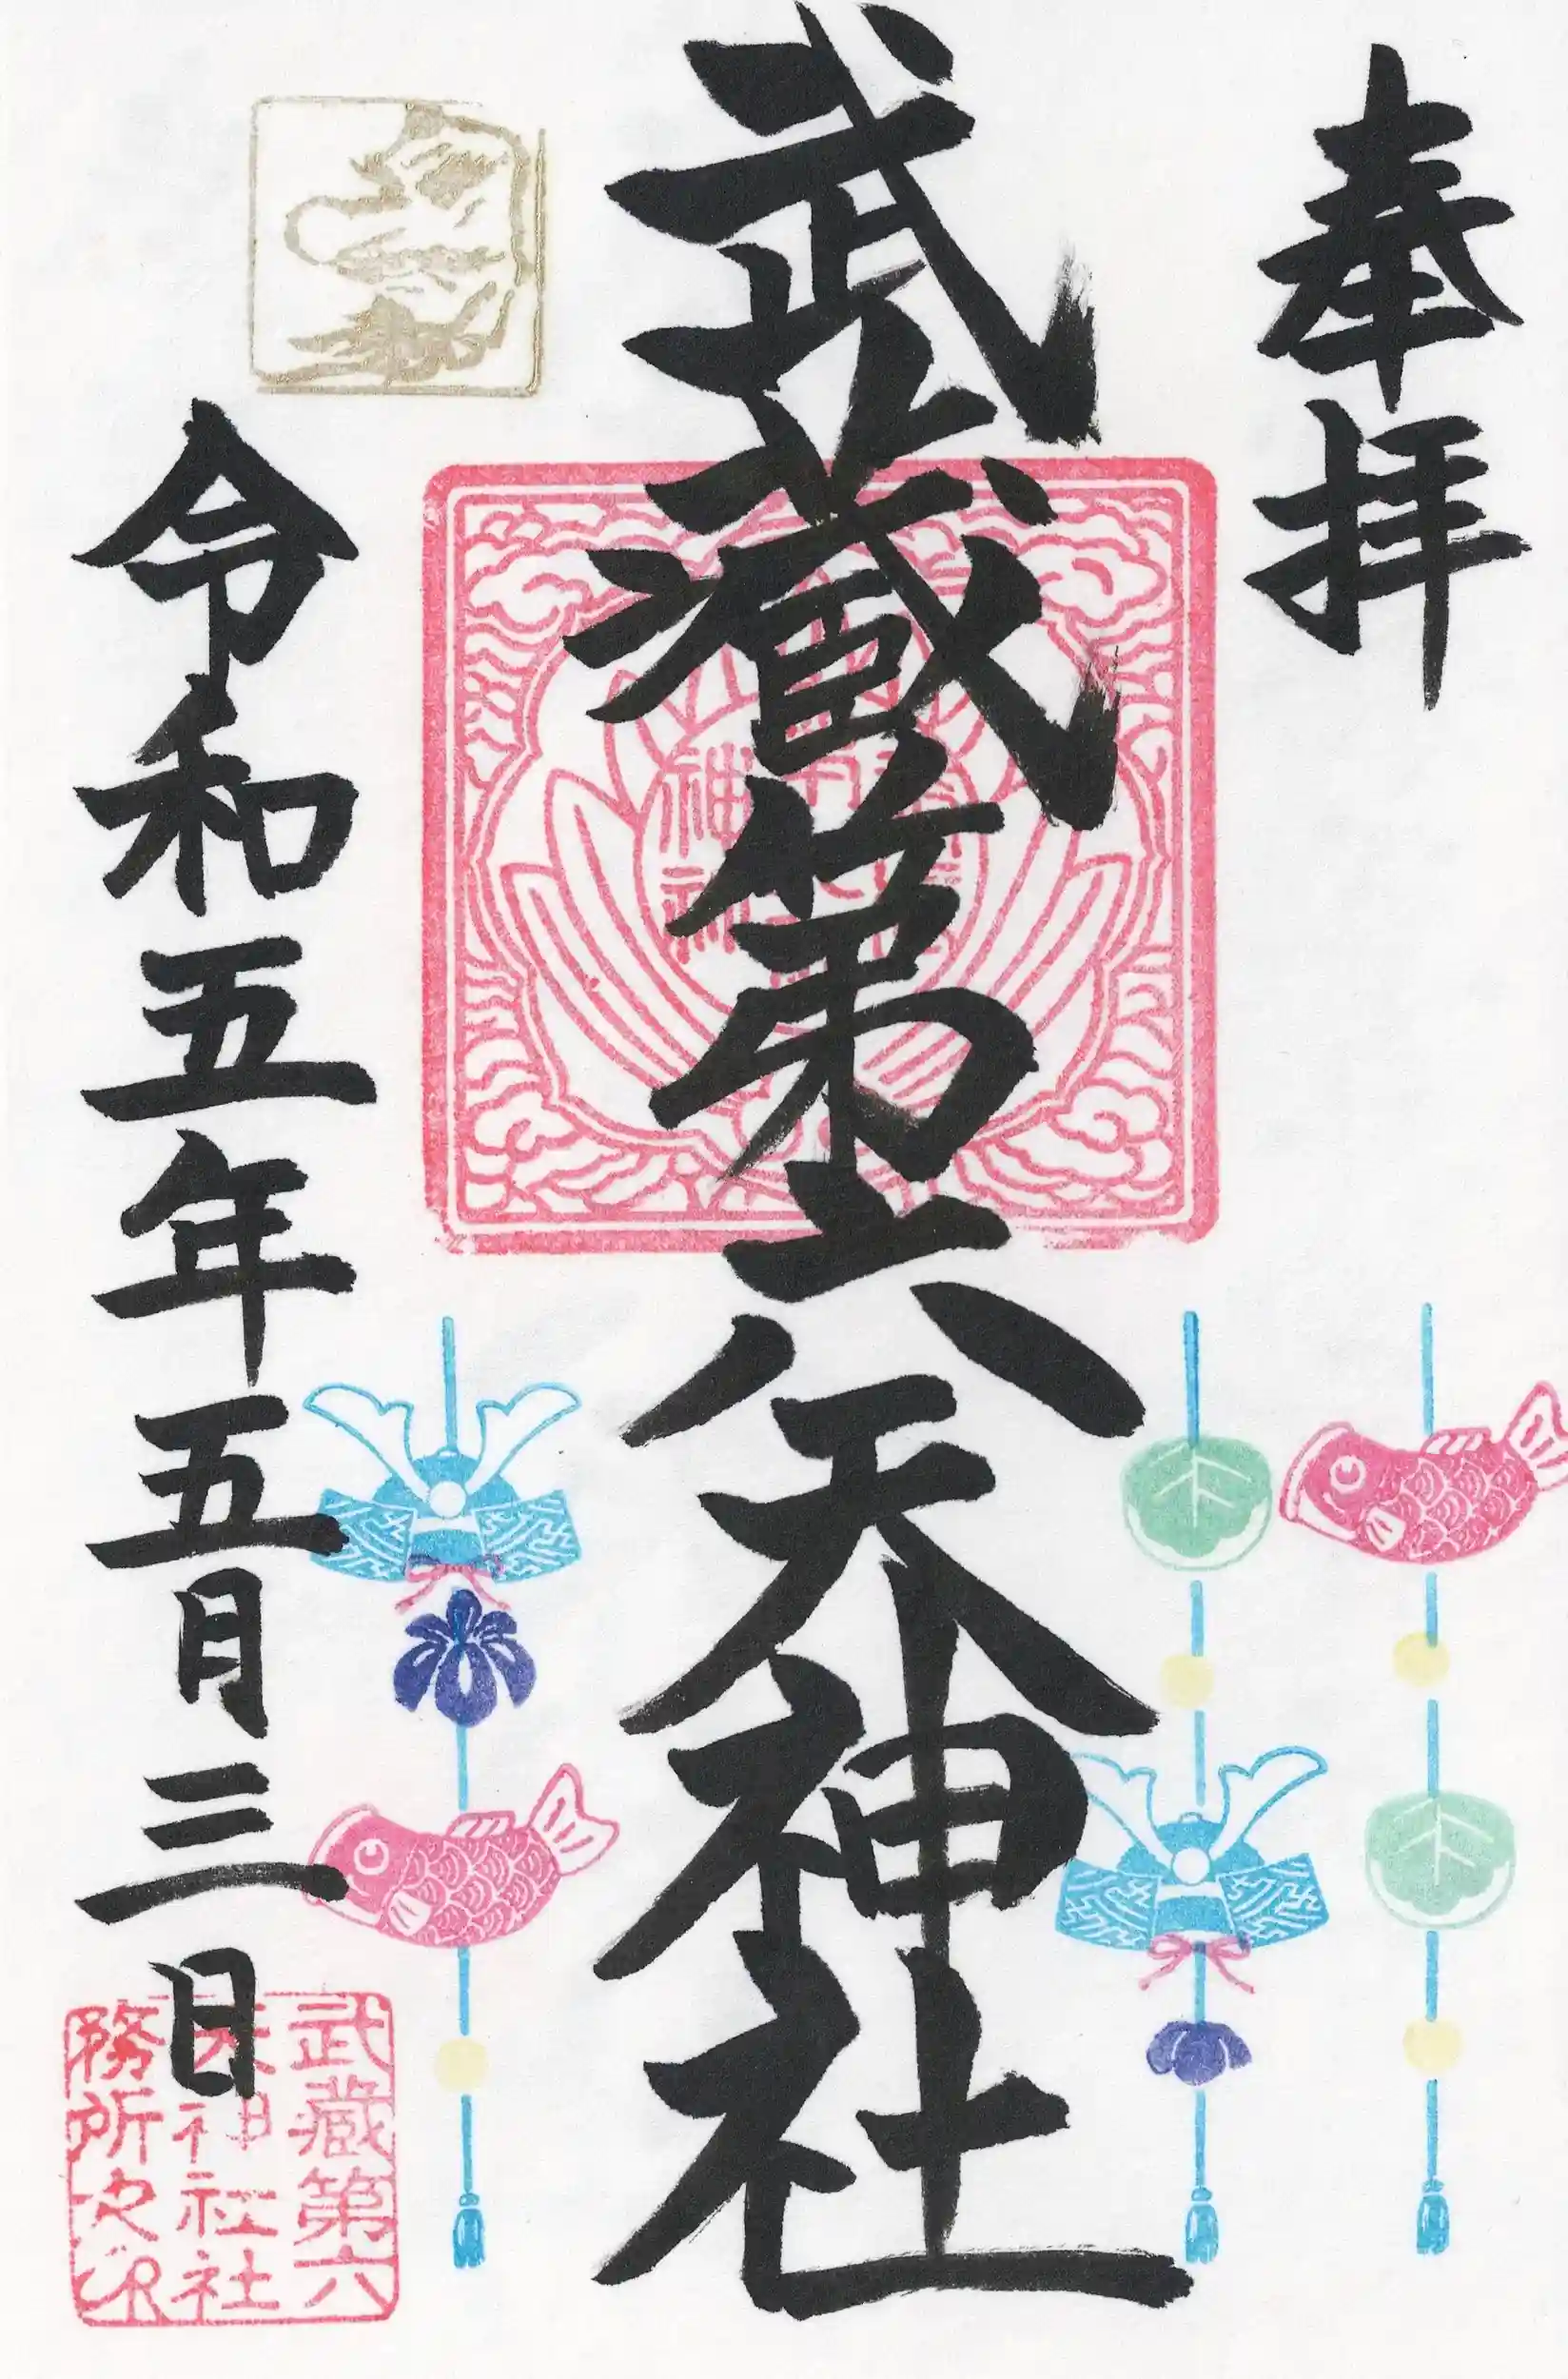 奉拝
武蔵第六天神社
令和五年五月三日
武蔵第六
天神社社
務所之印
神社